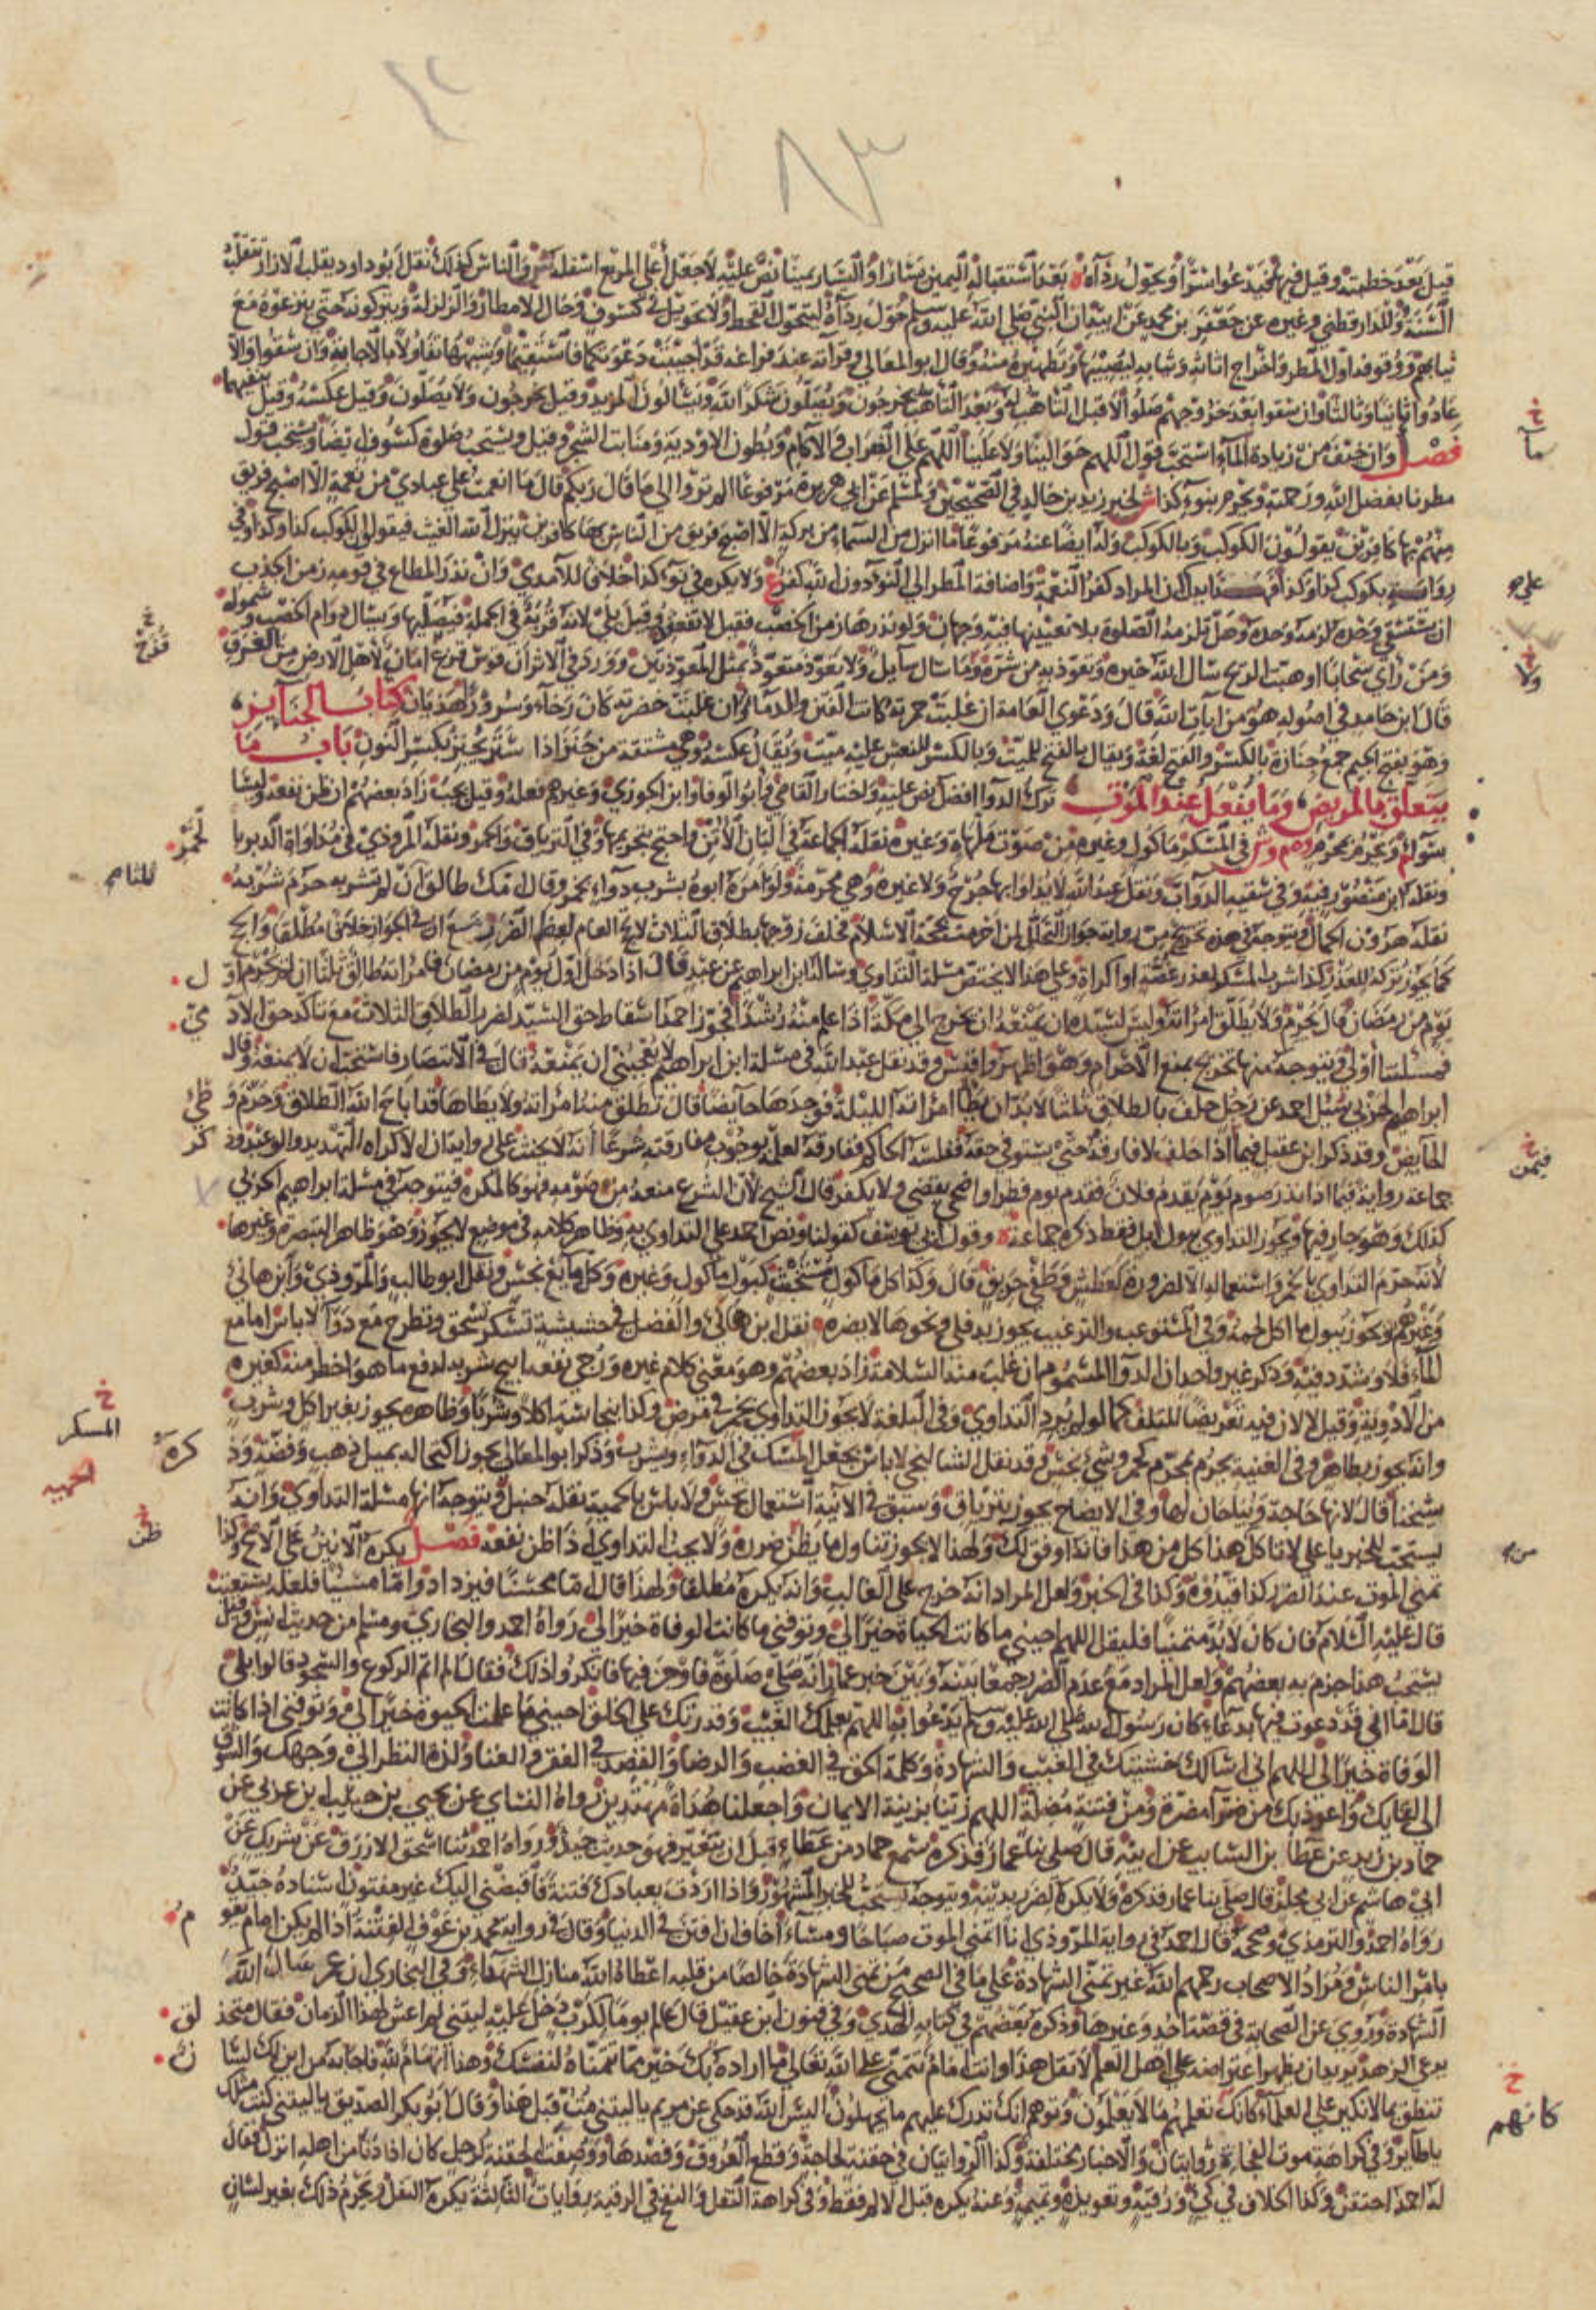 قيل بعد خطبته وقيل فيهما يخير عوا سرا ويحول رداه بعد استقباله اليمين يسارا واليسار يمينا نص عليه لا جعل أعلى المربع اسفله والناس كذلك نقل ابو داود يقلب الازار تنقلب
السنة وللدارقطني وغيره عن جعفر بن محمد عن ابيه ان النبي صلى الله عليه وسلم حول رداه ليتحول القحط ولا تحويل في كسوف وحال الامطار والزلزلة ويتركونه حتى ينزعوه مع
ثيابهم ووقوفه اول المطر واخراج اثاثه وثيابه ليصيبها وتطهيره منه وقال ابو المعالي وقرآته عند فراغه قد اجيبت دعوتكما فاستقيما وشبههما تفاؤلا بالاجابة وان سقوا والا
عادوا ثانيا وثالثا وان سقوا بعد خروجهم صلوا لا قبل التاهب له وبعد التاهب يخرجون ويصلون شكرا لله ويسالون المزيد وقيل يخرجون ولا يصلون وقيل عكسه وقيل بنفيهما
فصل وان خيف من زيادة الماء استحب قول اللهم حوالينا ولا علينا اللهم على الظراب والاكام وبطون الاودية ومنابت الشجر وقيل ويستحب صلوة كسوف ايضا ويستحب قول
مطرنا بفضل الله ورحمته ويحرم بنوء كذا لخبر زيد بن خالد في الصحيحين ولمسلم عن ابي هريرة مرفوعا الم تروا الى ما قال ربكم قال ما انعمت على عبادي من نعمة الا اصبح فريق
منهم بها كافرين يقولون الكوكب وبالكوكب وله ايضا عنه مرفوعا ما انزل من السماء من بركة الا اصبح فريق من الناس بها كافرين ينزل الله الغيث فيقولون الكوكب كذا وكذا وفي
رواية بكوكب كذا وكذا فهذا يدل ان المراد كفر النعمة واضافة المطر الى النوء دون الله كفر ع ولا يكره في نوء كذا خلافا للآمدي وان نذر المطاع في قومه زمن الجدب
ان يستسقي وحده لزمه وحده وهل تلزمه الصلوة بلا تعيينها فيه وجهان ولو نذرها زمن الخصب فقيل لا تنعقد وقيل بلى لانه قربة في الجملة فيصليها ويسال دوام الخصب وشموله
ومن راى سحابا او هبت الريح سال الله خيره وتعوذ به من شره وما سال سايل ولا تعوذ متعوذ بمثل المعوذتين وورد في الاثر ان قوس قزح امان لاهل الارض من الغرق
قال ابن حامد في اصوله هو من ايات الله قال ودعوى العامة ان غلبت حمرته كانت الفتن والدما وان غلبت خضرته كان رخاء وسرور هذيان كتاب الجنايز
وهو بفتح الجيم جمع جنازة بالكسر والفتح لغة ويقال بالفتح للميت وبالكسر للنعش عليه ميت ويقال عكسه وهي مشتقة من جنز اذا ستر يجنز بكسر النون باب ما
يتعلق بالمريض وما يفعل عند الموت ترك الدوا افضل نص عليه واختار القاضي وابو الوفا وابن الجوزي وغيرهم فعله وقيل يجب زاد بعضهم ان ظن نفعه وليسا
سواء ويحرم بمحرم في المسكر ماكول وغيره من صوت ملهاة وغيره نقله الجماعة في البان الاتن واحتج بتحريمها وفي الترياق والخمر ونقله المروذي في مداواة الدبر بها
ونقله ابن منصور فيه وفي سقيه الدواب ونقل عبد الله لا يداوى بها جرح ولا غيره وهي محرمة ولو امره ابوه بشرب دواء بخمر وقال امك طالق ان لم تشربه حرم شربه
نقله هرون الحمال ويتوجه في هذه تخريج من رواية جواز التحلل لمن احرمت بحجة الاسلام فحلف زوجها بطلاق الثلاث لاح العام لعظم الضرر مع ان في الجواز خلافا مطلقا والحج
كما يجوز تركه للعذر كذا شرب المسكر لعذر غصة او اكراه وعلى هذا لا يختص مسئلة التداوي وسالنا ابن ابراهيم عن عبد قال اذا دخل اول يوم من رمضان فامراته طالق ثلثا ان لم احرم اول
يوم من رمضان قال يحرم ولا يطلق امراته وليس لسيده ان يمنعه ان يخرج الى مكة اذا علم منه رشدا فجوز احمد اسقاط حق السيد لضرر الطلاق الثلاث مع تاكد حق الادمي
فمسئلتنا اولى ويتوجه منها تخريج بمنع الاحرام وهو اظهر واقيس وقد نقل عبد الله في مسئلة ابن ابراهيم لا يعجبني ان يمنعه قال في الانتصار فاستحب ان لا يمنعه وقال
ابراهيم الحربي سئل احمد عن رجل حلف بالطلاق ثلثا لا بد ان يطا امراته الليلة فوجدها حايضا قال تطلق منه امراته ولا يطاها قد اباح الله الطلاق وحرم وطئ
الحايض وقد ذكر ابن عقيل فيما اذا حلف لا فارقه حتى يستوفي حقه ففلسه الحاكم ففارقه لعلمه بوجوب مفارقته شرعا انه لا يحنث على رواية ان الاكراه التهديد والوعيد وذكر
جماعة رواية فيما اذا نذر صوم يوم يقدم فلان فقدم يوم فطر او اضحى يقضي ولا يكفر قال الشيخ لان الشرع منعه من صومه فهو كالمكره فيتوجه في مسئلة ابراهيم الحربي
كذلك وهو جار فيها ويجوز التداوي ببول ابل فقط ذكره جماعة وقول ابي يوسف كقولنا ونص احمد على التداوي به وظاهر كلامه في موضع لا يجوز وهو ظاهر التبصرة وغيرها
لانه حرم التداوي بالخمر واستعماله الا لضرورة كعطش وطفي حريق قال وكذا كل ماكول مستخبث كبول ماكول وغيره وكل مايع نجس ونقل ابو طالب والمروذي وابن هانئ
وغيرهم ويجوز ببول ما اكل لحمه وفي المستوعب والترغيب يجوز بدفلى ونحوها لا يضره نقل ابن هانئ والفضل في حشيشة تسكر تسحق وتطرح مع دوا لا باس اما مع
الماء فلا وشدد فيه وذكر غير واحد ان الدوا المسموم ان غلب منه السلامة زاد بعضهم وهو معنى كلام غيره ورجي نفعه ابيح شربه لدفع ما هو اخطر منه كغيره
من الادوية وقيل لا لان فيه تعريضا للتلف كما لو لم يرد التداوي وفي البلغة لا يجوز التداوي بخمر في مرض وكذا بنجاسة اكلا وشربا وظاهره يجوز بغير اكل وشرب
وانه يجوز بطاهر وفي الغنية يحرم بمحرم كخمر وشيء نجس وقد نقل الشالنجي لا باس بجعل المسك في الدواء ويشرب وذكر ابو المعالي يجوز اكتحاله بميل ذهب وفضة وذكره
شيخنا قال لانها حاجة ويباحان لها وفي الايضاح يجوز بترياق وسبق في الآنية استعمال نجس ولا باس بالحمية نقله حنبل ويتوجه انها مسئلة التداوي وانه
يستحب للخبر يا علي لا تاكل هذا كل من هذا فانه اوفق لك ولهذا لا يجوز تناول ما يظن ضرره ولا يجب التداوي اذا ظن نفعه فصل يكره الانين على الاصح وكذا
تمني الموت عند الضر كذا قيدوه وكذا في الخبر ولعل المراد انه خرج على الغالب وانه يكره مطلقا ولهذا قال اما محسنا فيزداد واما مسيئا فلعله يستعتب
قال عليه السلام فان كان لا بد متمنيا فليقل اللهم احيني ما كانت الحياة خيرا لي وتوفني ما كانت الوفاة خيرا لي رواه احمد والبخاري ومسلم من حديث انس وقيل
يستحب هذا جزم به بعضهم ولعل المراد مع عدم الضر جمعا بينه وبين خبر عمار انه صلى صلوة فاوجز فيها فانكروا ذلك فقال الم اتم الركوع والسجود قالوا بلى
قال اما اني قد دعوت فيها بدعاء كان رسول الله صلى الله عليه وسلم يدعو به اللهم بعلمك الغيب وقدرتك على الخلق احيني ما علمت الحيوة خيرا لي وتوفني اذا كانت
الوفاة خيرا لي اللهم اني اسالك خشيتك في الغيب والشهادة وكلمة الحق في الغضب والرضا والقصد في الفقر والغنا ولذة النظر الى وجهك والشوق
الى لقايك واعوذ بك من ضراء مضرة ومن فتنة مضلة اللهم زينا بزينة الايمان واجعلنا هداة مهتدين رواه النساي عن يحيى بن حبيب ابن عربي عن
حماد بن زيد عن عطا بن السايب عن ابيه قال صلى بنا عمار فذكره سمع حماد من عطاء قبل ان يتغير فهو حديث جيد ورواه احمد ثنا اسحق الازرق عن شريك عن
ابي هاشم عن ابي مجلز قال صلى بنا عمار فذكره ولا يكره لضرر بدينه ويتوجه يستحب للخبر المشهور واذا اردت بعبادك فتنة فاقبضني اليك غير مفتون اسناده جيد
رواه احمد والترمذي وصححه قال احمد في رواية المروذي انا اتمنى الموت صباحا ومساء اخاف ان افتن في الدنيا وقال في رواية محمد بن عوف الفتنة اذا لم يكن امام يقوم
بامر الناس ومراد الاصحاب رحمهم الله غير تمني الشهادة على ما في الصحيح من تمنى الشهادة خالصا من قلبه اعطاه الله منازل الشهداء وفي البخاري ان عمر سال الله
الشهادة وروي عن الصحابة في قصة احد وغيرها وذكره بعضهم في كتابه الهدي وفي فنون ابن عقيل قال عالم يوما لكرب دخل عليه ليتني لم اعش لهذا الزمان فقال متحذلق
يدعي الزهد يريد ان يظهر اعتراضه على اهل العلم لا تقل هذا وانت امام تتمنى على الله تعالى ما اراده بك خير مما تتمناه لنفسك وهذا اتهام لله فاجابه من اين لك لسان
تنطق بما لا تكبر على العلماء كانك تعلمهم ما لا يعلمون وتوهم انك تدرك عليهم ما يجهلون اليس الله قد حكى عن مريم يا ليتني مت قبل هذا وقال ابو بكر الصديق يا ليتني كنت مثلك
يا طاير وفي كراهة موت الفجاءة روايتان والاخبار مختلفة وكذا الروايتان في حقنة لحاجة وقطع العروق وفصدها ووصفت الحقنة لرجل كان اذا دنا من اهله انزل فقال
له احمد احتقن وكذا الخلاف في كي ورقية وتعويذة وتميمة وعنه يكره قبل الالم فقط وفي كراهة التفل والنفخ في الرقية روايات الثالثة يكره التفل ويحرم ذلك بغير لسان